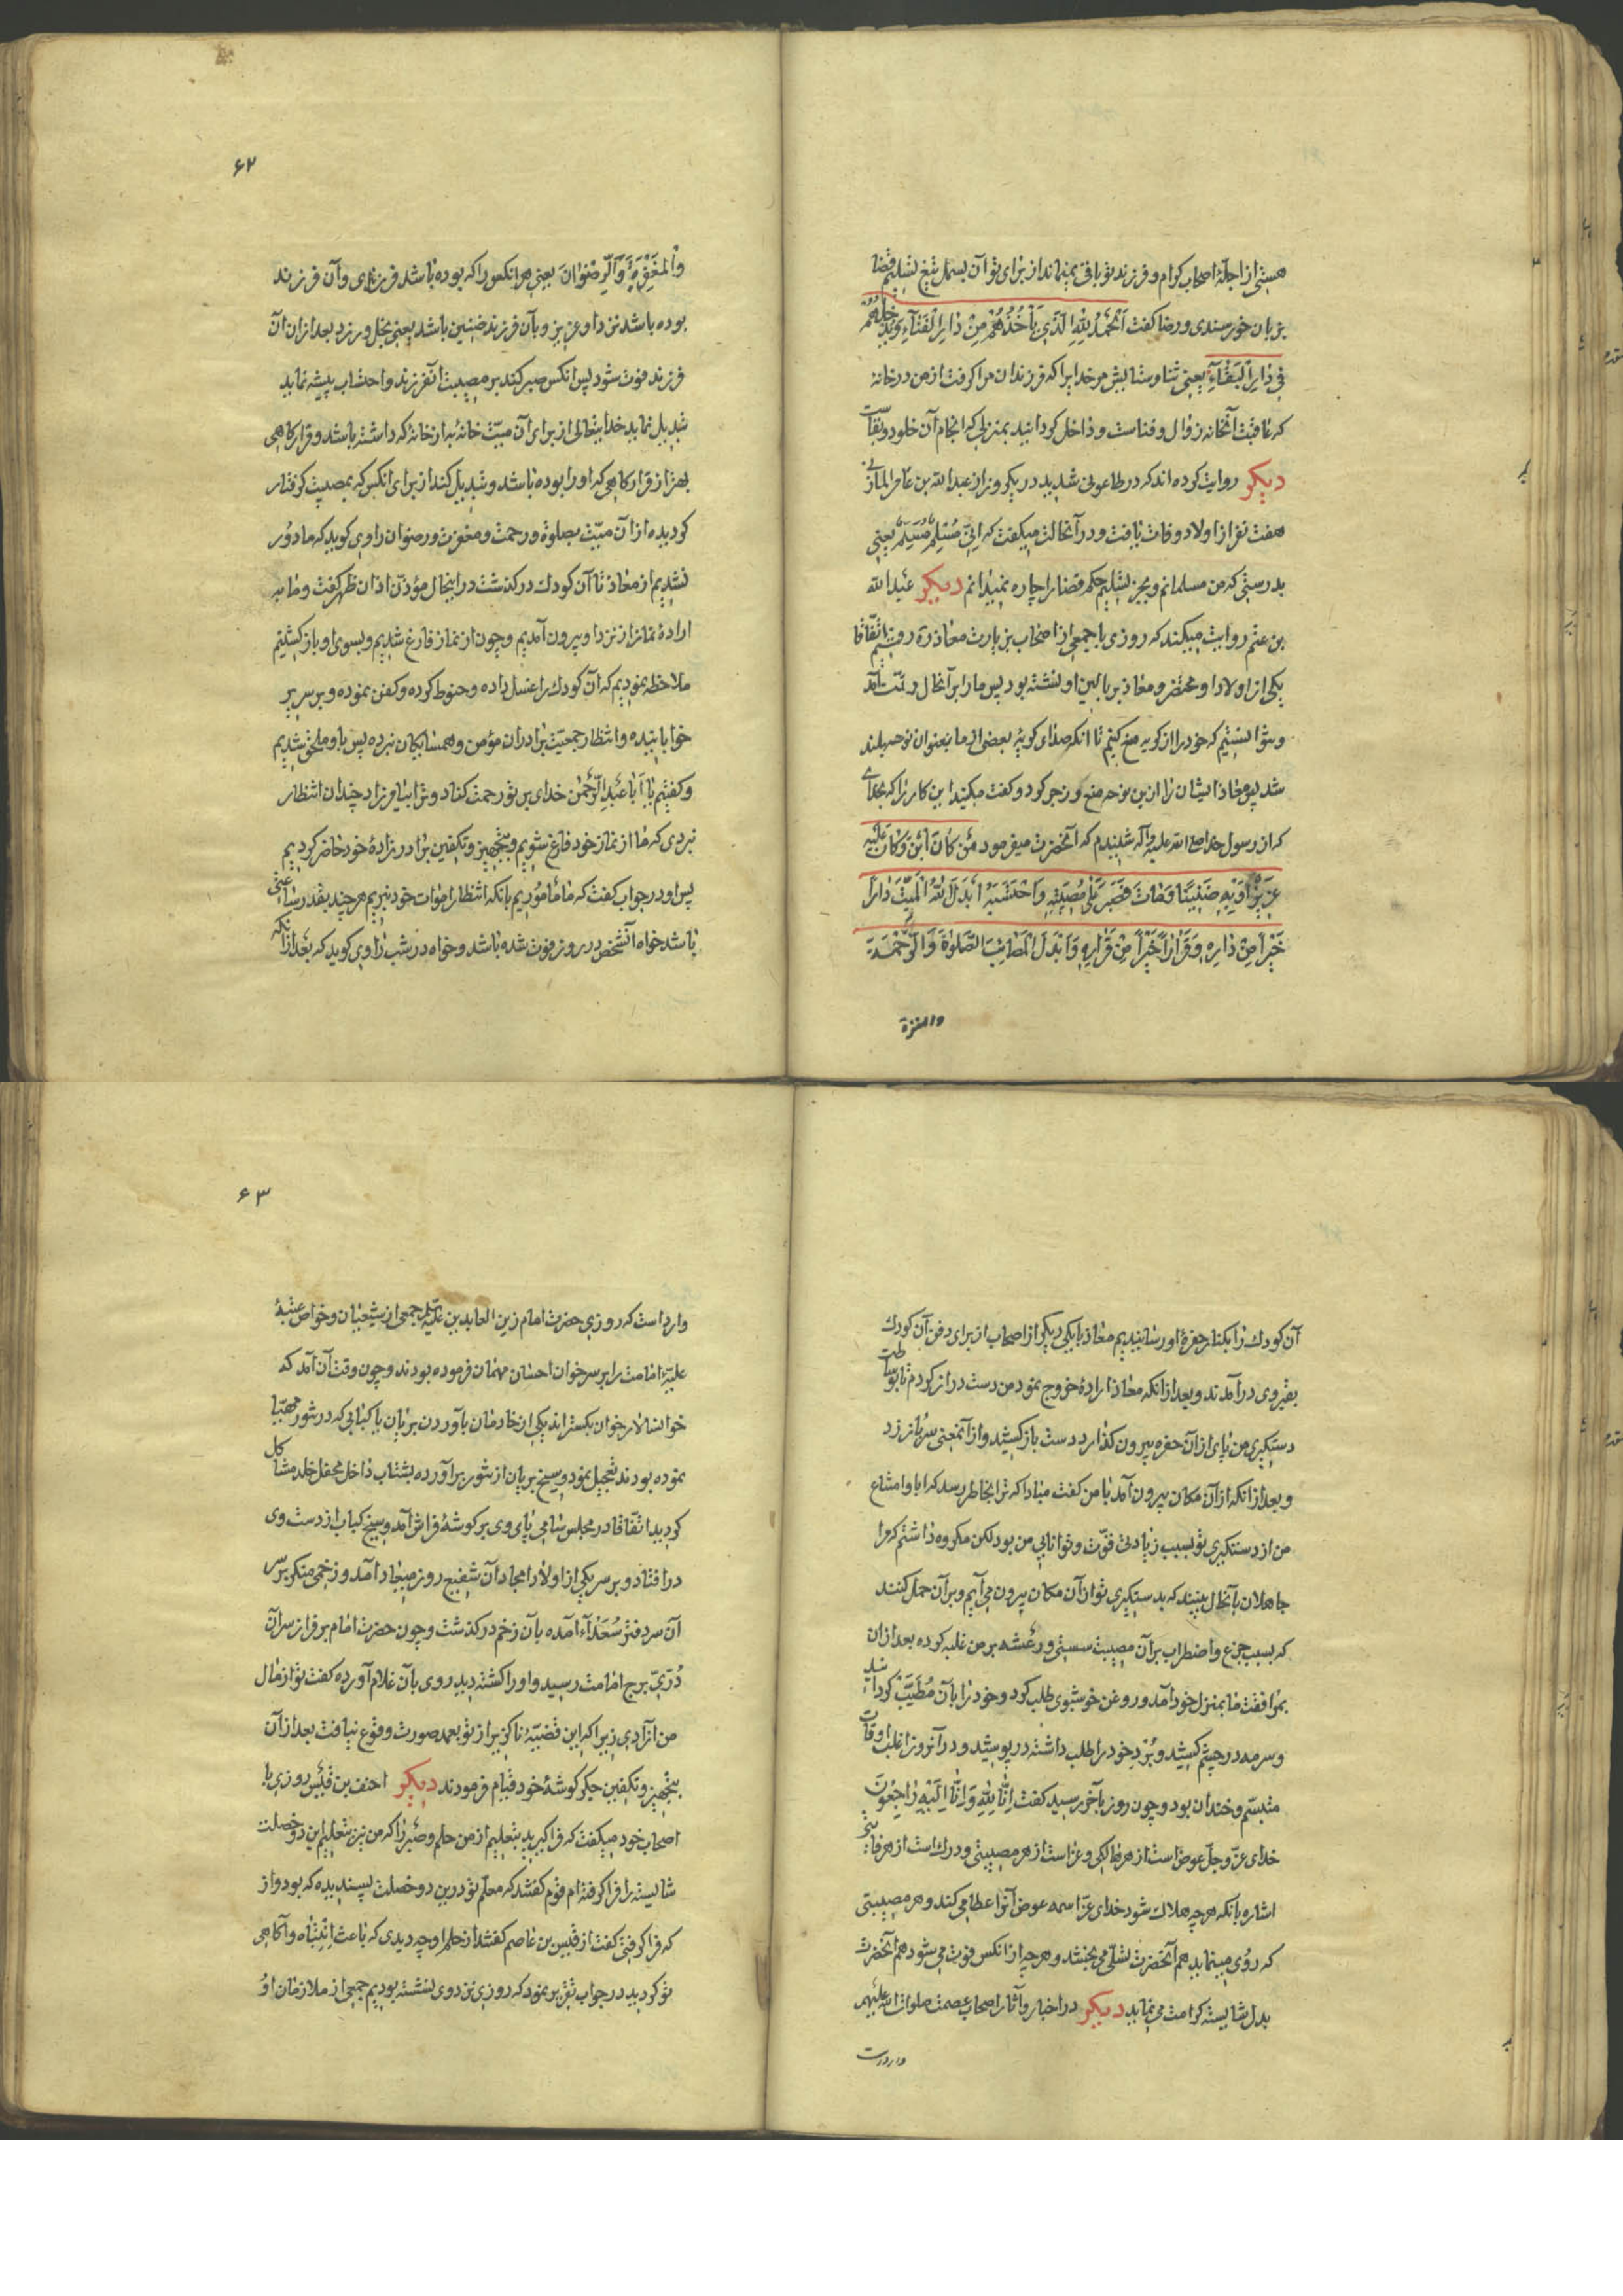 هستی از اجلّهٔ اصحاب کرام و فرزند تو باقی نمیماند از برای تو آن بسمل تیغ تسلیم قضا
بزبان خورسندی و رضا کفت اَلْحَمْدُ لِلّٰهِ الَّذِی یَأْخُذُهُمْ مِنْ دٰارِ الْفَنٰآءِ وَیُدْخِلُهُمْ
فِی دٰارِ الْبَقٰآءِ یعنی ثنا و ستایش مر خدایرا که فرزندان مرا کرفت از من در خانه
که عاقبت آنخانه زوال و فناست و داخل کردانید بمنزلی که انجام آن خلود و بقاست
دیکر روایت کرده‌اند که در طاعونی شدید در یکروز از عبدالله بن عامر المازنی
هفت نفر از اولاد وفات یافت و در آنحالت میکفت که اِنِّی مُسْلِمٌ مُسَلِّمٌ یعنی
بدرستی که من مسلمانم و بجز تسلیم حکم قضا را چاره نمیدانم دیکر عبدالله
بن عثم روایت میکند که روزی با جمعی از اصحاب بزیارت معاذ ره رفتیم اتّفاقا
یکی از اولاد او محتضر و معاذ بر بالین او نشسته بود پس ما را بر آنحال رقّت آمد
و نتوانستیم که خود را از کریه منع کنیم تا انکه صدای کریهٔ بعضی از ما بعنوان نوحه بلند
شد پس معاذ ایشان را از این نوحه منع و زجر کرد و کفت میکنید این کار را که بخدای
که از رسول خدا صلی الله علیه وآله شنیدم که آنحضرت میفرمود مَنْ کٰانَ لَهُ ابْنٌ وَکٰانَ عَلَیْهِ
عَزِیزًا وَبِهِ ضَنِینًا وَمٰاتَ فَصَبَرَ عَلٰی مُصِیبَتِهِ وَاحْتَسَبَهُ اَبْدَلَ اللّٰهُ الْمَیِّتَ دٰارًا
خَیْرًا مِنْ دٰارِهِ وَقَرٰارًا خَیْرًا مِنْ قَرٰارِهِ وَاَبْدَلَ الْمُصٰابَ الصَّلٰوةَ وَالرَّحْمَةَ
والمغفرة
۶۲
وَالْمَغْفِرَةَ وَالرِّضْوٰانَ یعنی هر انکس را که بوده باشد فرزندی و آن فرزند
بوده باشد نزد او عزیز و بآن فرزند ضنین باشد یعنی بخل ورزد بعد از ان آن
فرزند فوت شود پس انکس صبر کند بر مصیبت آنفرزند و احتساب پیشه نماید
تبدیل نماید خدایتعالی از برای آن میّت خانهٔ به از خانهٔ که داشته باشد و قرارکاهی
بهتر از قرارکاهی که او را بوده باشد و تبدیل کند از برای انکس که بمصیبت کرفتار
کردیده از آن میّت بصلوة و رحمت و مغفرت و رضوان راوی کوید که ما دور
نشدیم از معاذ تا آن کودك درکذشت در اینحال مؤذّن اذان ظهر کفت و ما به
ارادهٔ نماز از نزد او بیرون آمدیم و چون از نماز فارغ شدیم و بسوی او باز کشتیم
ملاحظه نمودیم که آن کودك را غسل داده و حنوط کرده و کفن نموده و بر سریر
خوابانیده و انتظار جمعیّت برادران مؤمن و همسایکان نبرده پس باو ملحق شدیم
و کفتیم یا اَبٰا عَبْدِ الرَّحْمٰن خدای بر تو رحمت کناد و ترا بیامرزاد چندان انتظار
نبردی که ما از نماز خود فارغ شویم و بتجهیز و تکفین برادرزادهٔ خود حاضر کردیم
پس او در جواب کفت که ما مأموریم بانکه انتظار اموات خود نبریم هر چند بقدر ساعتی
باشد خواه آنشخص در روز فوت شده باشد و خواه در شب راوی کوید که بعد از انکه
آن کودك را بکنار حفرهٔ او رسانیدیم معاذ با یکی دیکر از اصحاب از برای دفن آن کودك
بقبر وی درآمدند و بعد از انکه معاذ ارادهٔ خروج نمود من دست دراز کردم تا بوساطت
دستکیری من پای از آن حفره بیرون کذارد دست باز کشید و از آنمعنی سر باز زد
و بعد از انکه از آن مکان بیرون آمد با من کفت مبادا که ترا بخاطر رسد که ابا و امتناع
من از دستکیری تو بسبب زیادتی قوّت و توانایی من بود لکن مکروه داشتم که مرا
جاهلان بآنحال بینند که بدستکیری تو از آن مکان بیرون می‌آیم و بر آن حمل کنند
که بسبب جزع و اضطراب بر آن مصیبت سستی و رعشه بر من غلبه کرده بعد از ان
بمرافقت ما بمنزل خود آمد و روغن خوشبوی طلب کرد و خود را بآن مُطَیَّب کردانید
و سرمه در چشم کشید و بُرد خود را طلب داشته در پوشید و در آنروز اغلب اوقات
متبسّم و خندان بود و چون روز بآخر رسید کفت اِنّٰا لِلّٰهِ وَاِنّٰا اِلَیْهِ رٰاجِعُونَ
خدای عزّ و جلّ عوض است از هر هالکی و عزاست از هر مصیبتی و درك است از هر فائتی
اشاره بانکه هر چه هلاك شود خدای عزّ اسمه عوض آنرا عطا می کند و هر مصیبتی
که روی مینماید هم آنحضرت تسلّی می بخشد و هر چه از انکس فوت می شود هم آنحضرت
بدل شایسته کرامت می نماید دیکر در اخبار و آثار اصحاب عصمت صلوات الله علیهم
وارد است
۶۳
وارد است که روزی حضرت امام زین العابدین علیه السلام جمعی از شیعیان و خواص عتبهٔ
علیّهٔ امامت را بر سر خوان احسان مهمان فرموده بودند و چون وقت آن آمد که
خوانسالار خوان بکستراند یکی از خادمان بآوردن بریان یا کبابی که در تنور مهیّا
نموده بودند تعجیل نموده و سیخ بریان از تنور برآورده بشتاب داخل محفل خلد مشاکل
کردید اتّفاقا در مجلس سامی پای وی بر کوشهٔ فراش آمد و سیخ کباب از دست وی
در افتاد و بر سر یکی از اولاد امجاد آن شفیع روز میعاد آمد و زخمی منکر بر سر
آن سر دفتر سُعَدٰآء آمده بآن زخم درکذشت و چون حضرت امام بر فراز سر آن
دُرّیّ برج امامت رسید و او را کشته دید روی بآن غلام آورده کفت تو از مال
من آزادی زیرا که این قضیّهٔ ناکزیر از تو بعمد صورت وقوع نیافت بعد از آن
بتجهیز و تکفین جکر کوشهٔ خود قیام فرمودند دیکر احنف بن قَیْس روزی با
اصحاب خود میکفت که فرا کیرید بتعلیم از من حلم و صبر را که من نیز بتعلیم این دو خصلت
شایسته را فرا کرفته‌ام قوم کفتند که معلّم تو در این دو خصلت پسندیده که بود و از
که فرا کرفتی کفت از قیس بن عاصم کفتند از حلم او چه دیدی که باعث اِنتباه و آکاهی
تو کردید در جواب تقریر نمود که روزی نزد وی نشسته بودیم جمعی از ملازمان او